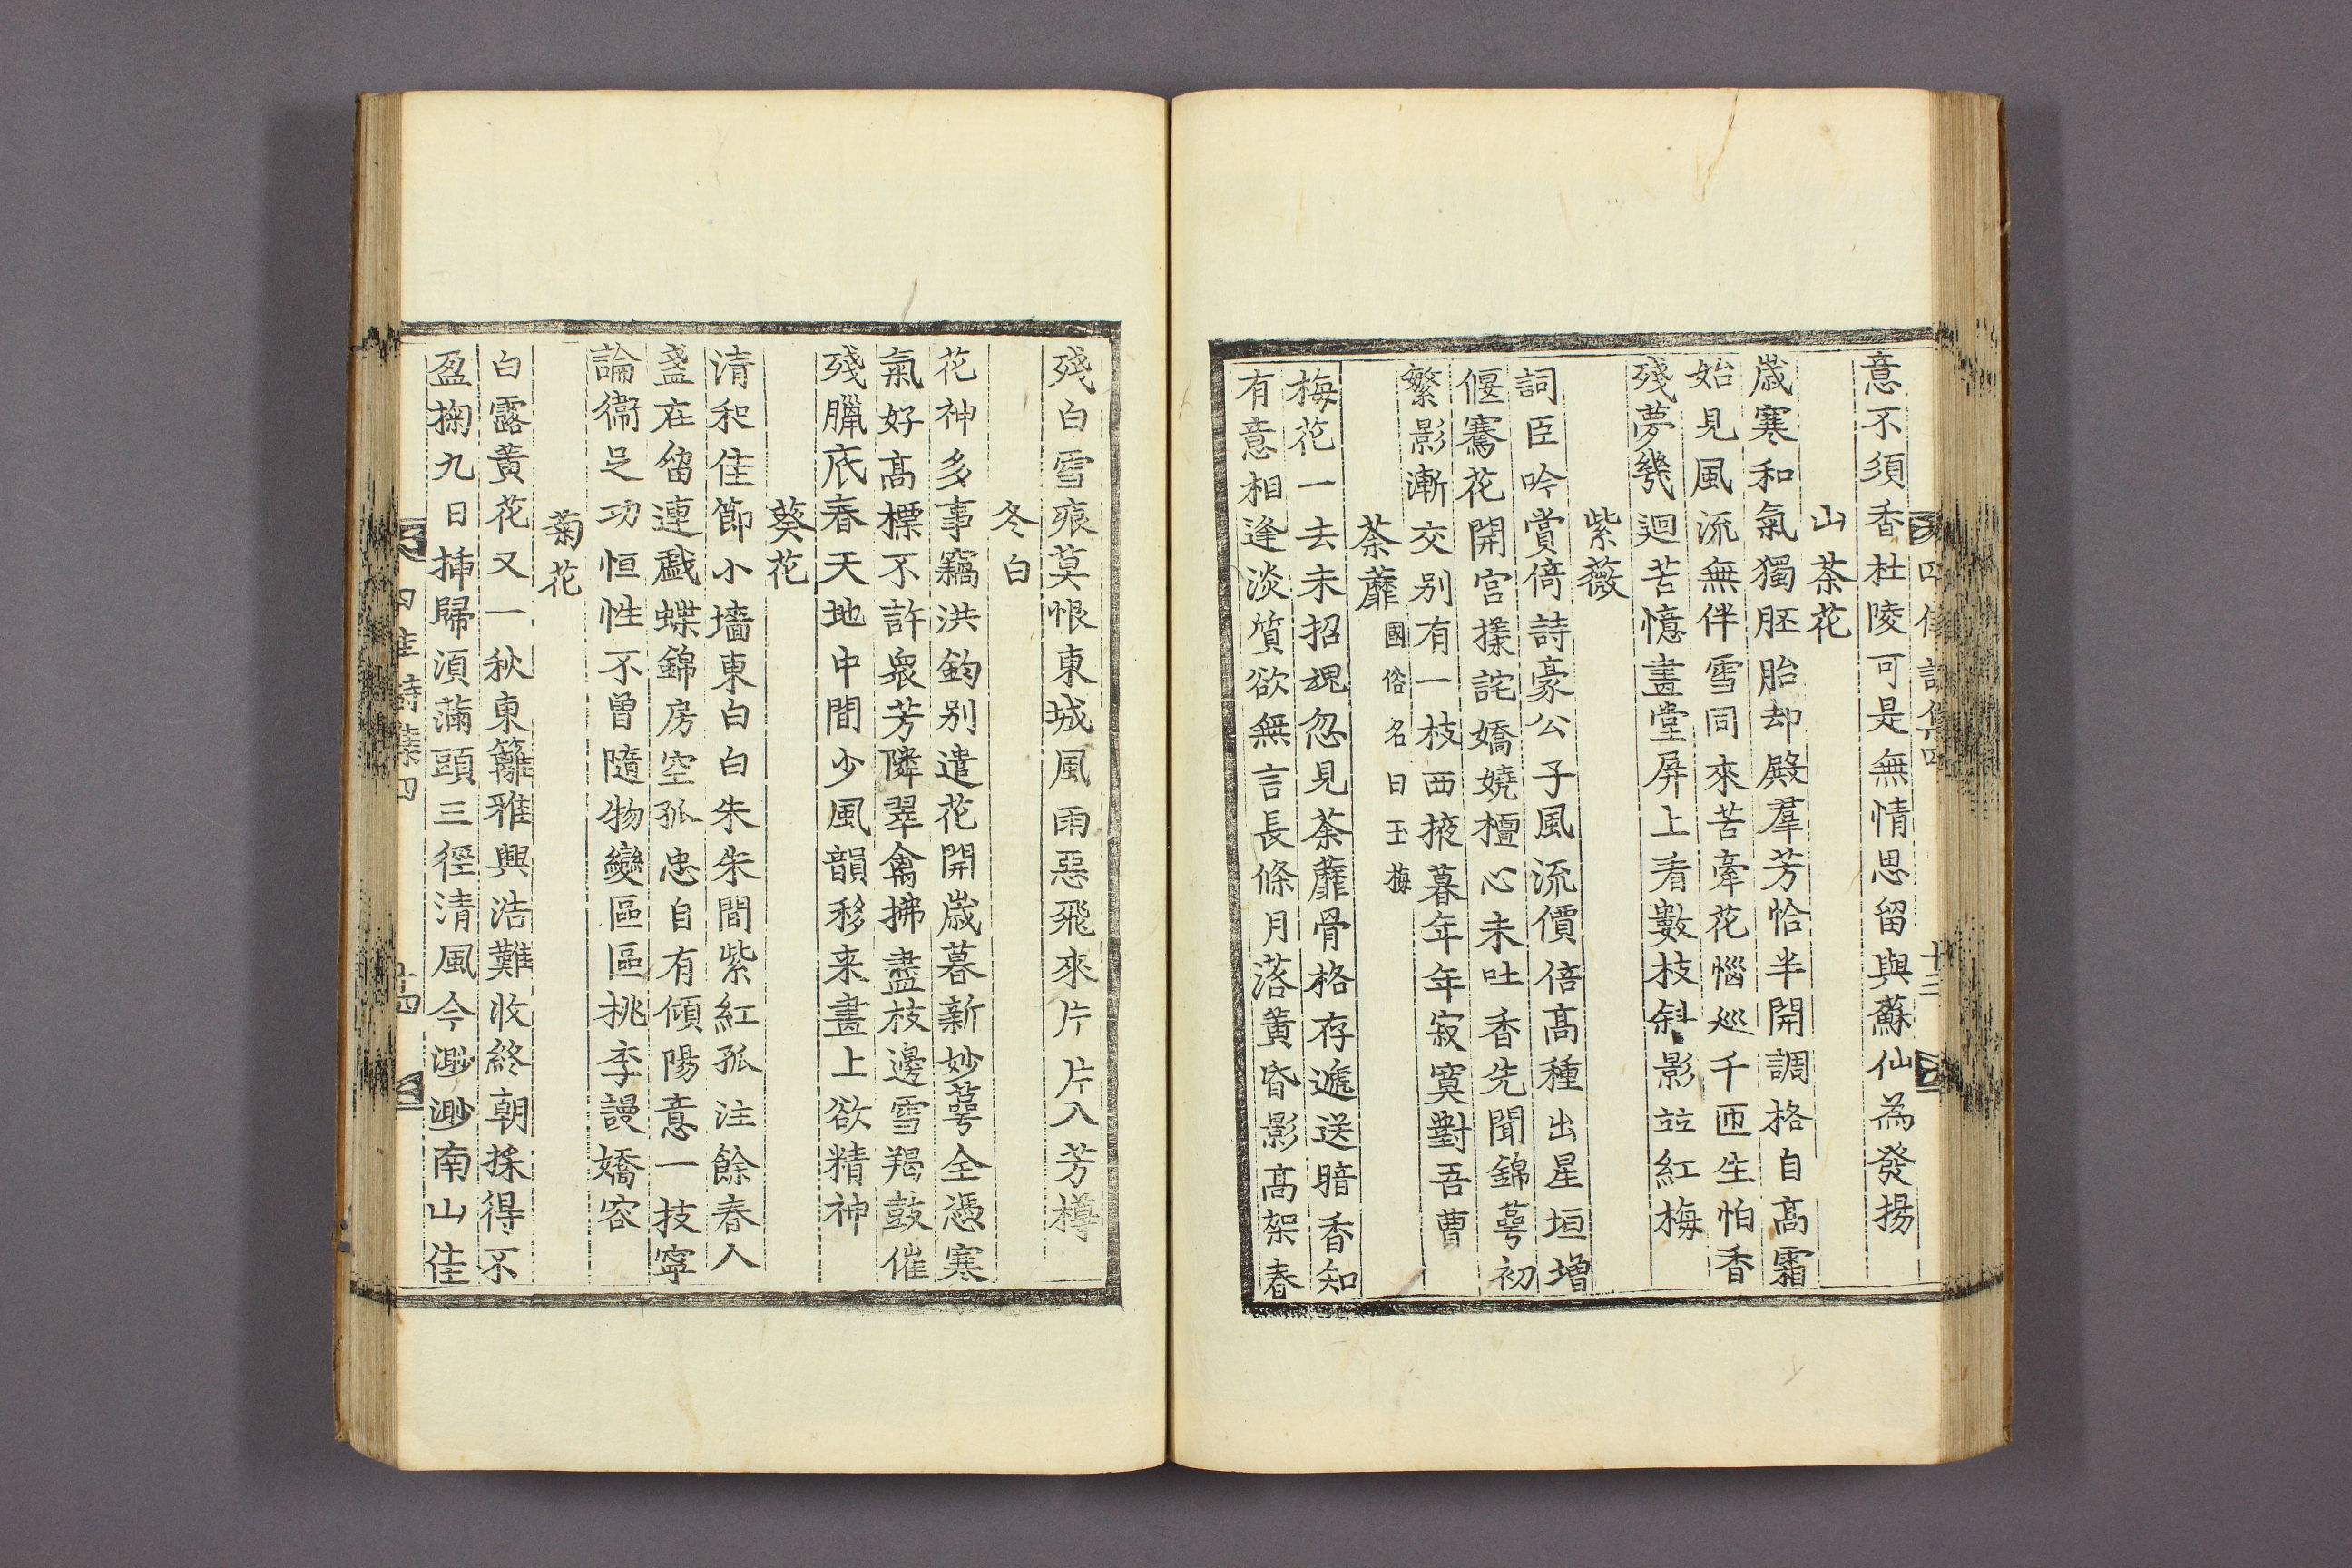 意不須香杜陵可是無情思留與蘇仙為發揚
山茶花
歲寒和氣獨胚胎却殿羣芳恰半開調格自高霜
始見風流無伴雪同來苦牽花惱廵千匝生怕香
殘夢幾迴苦憶畫堂屏上看數枝斜影竝紅梅
紫薇
詞臣吟賞倚詩豪公子風流價倍高種出星垣增
偃騫花開宮㨾詫嬌嬈檀心未吐香先聞錦萼初
繁影漸交别有一枝西掖暮年年寂寞對吾曹
荼蘼國俗名曰玉梅
梅花一去未招魂忽見荼蘼骨格存遞送暗香知
有意相逢淡質欲無言長條月落黃昏影高架春
殘白雪痕莫恨東城風雨惡飛來片片入芳樽
冬白
花神多事竊洪鈞别遣花開歲暮新妙萼全憑寒
氣好高標不許衆芳隣翠禽拂盡枝邊雪羯鼓催
殘臘底春天地中間少風韻移来畫上欲精神
葵花
清和佳節小墻東白白朱朱間紫紅孤注餘春入
盞在留連戲蝶錦房空孤忠自有傾陽意一技寧
論衞足功恒性不曾隨物變區區桃李謾嬌容
菊花
白露黃花又一秋東籬雅興浩難收終朝採得不
盈掬九日揷歸湏滿頭三徑清風今渺渺南山佳
四佳詩集四
十四